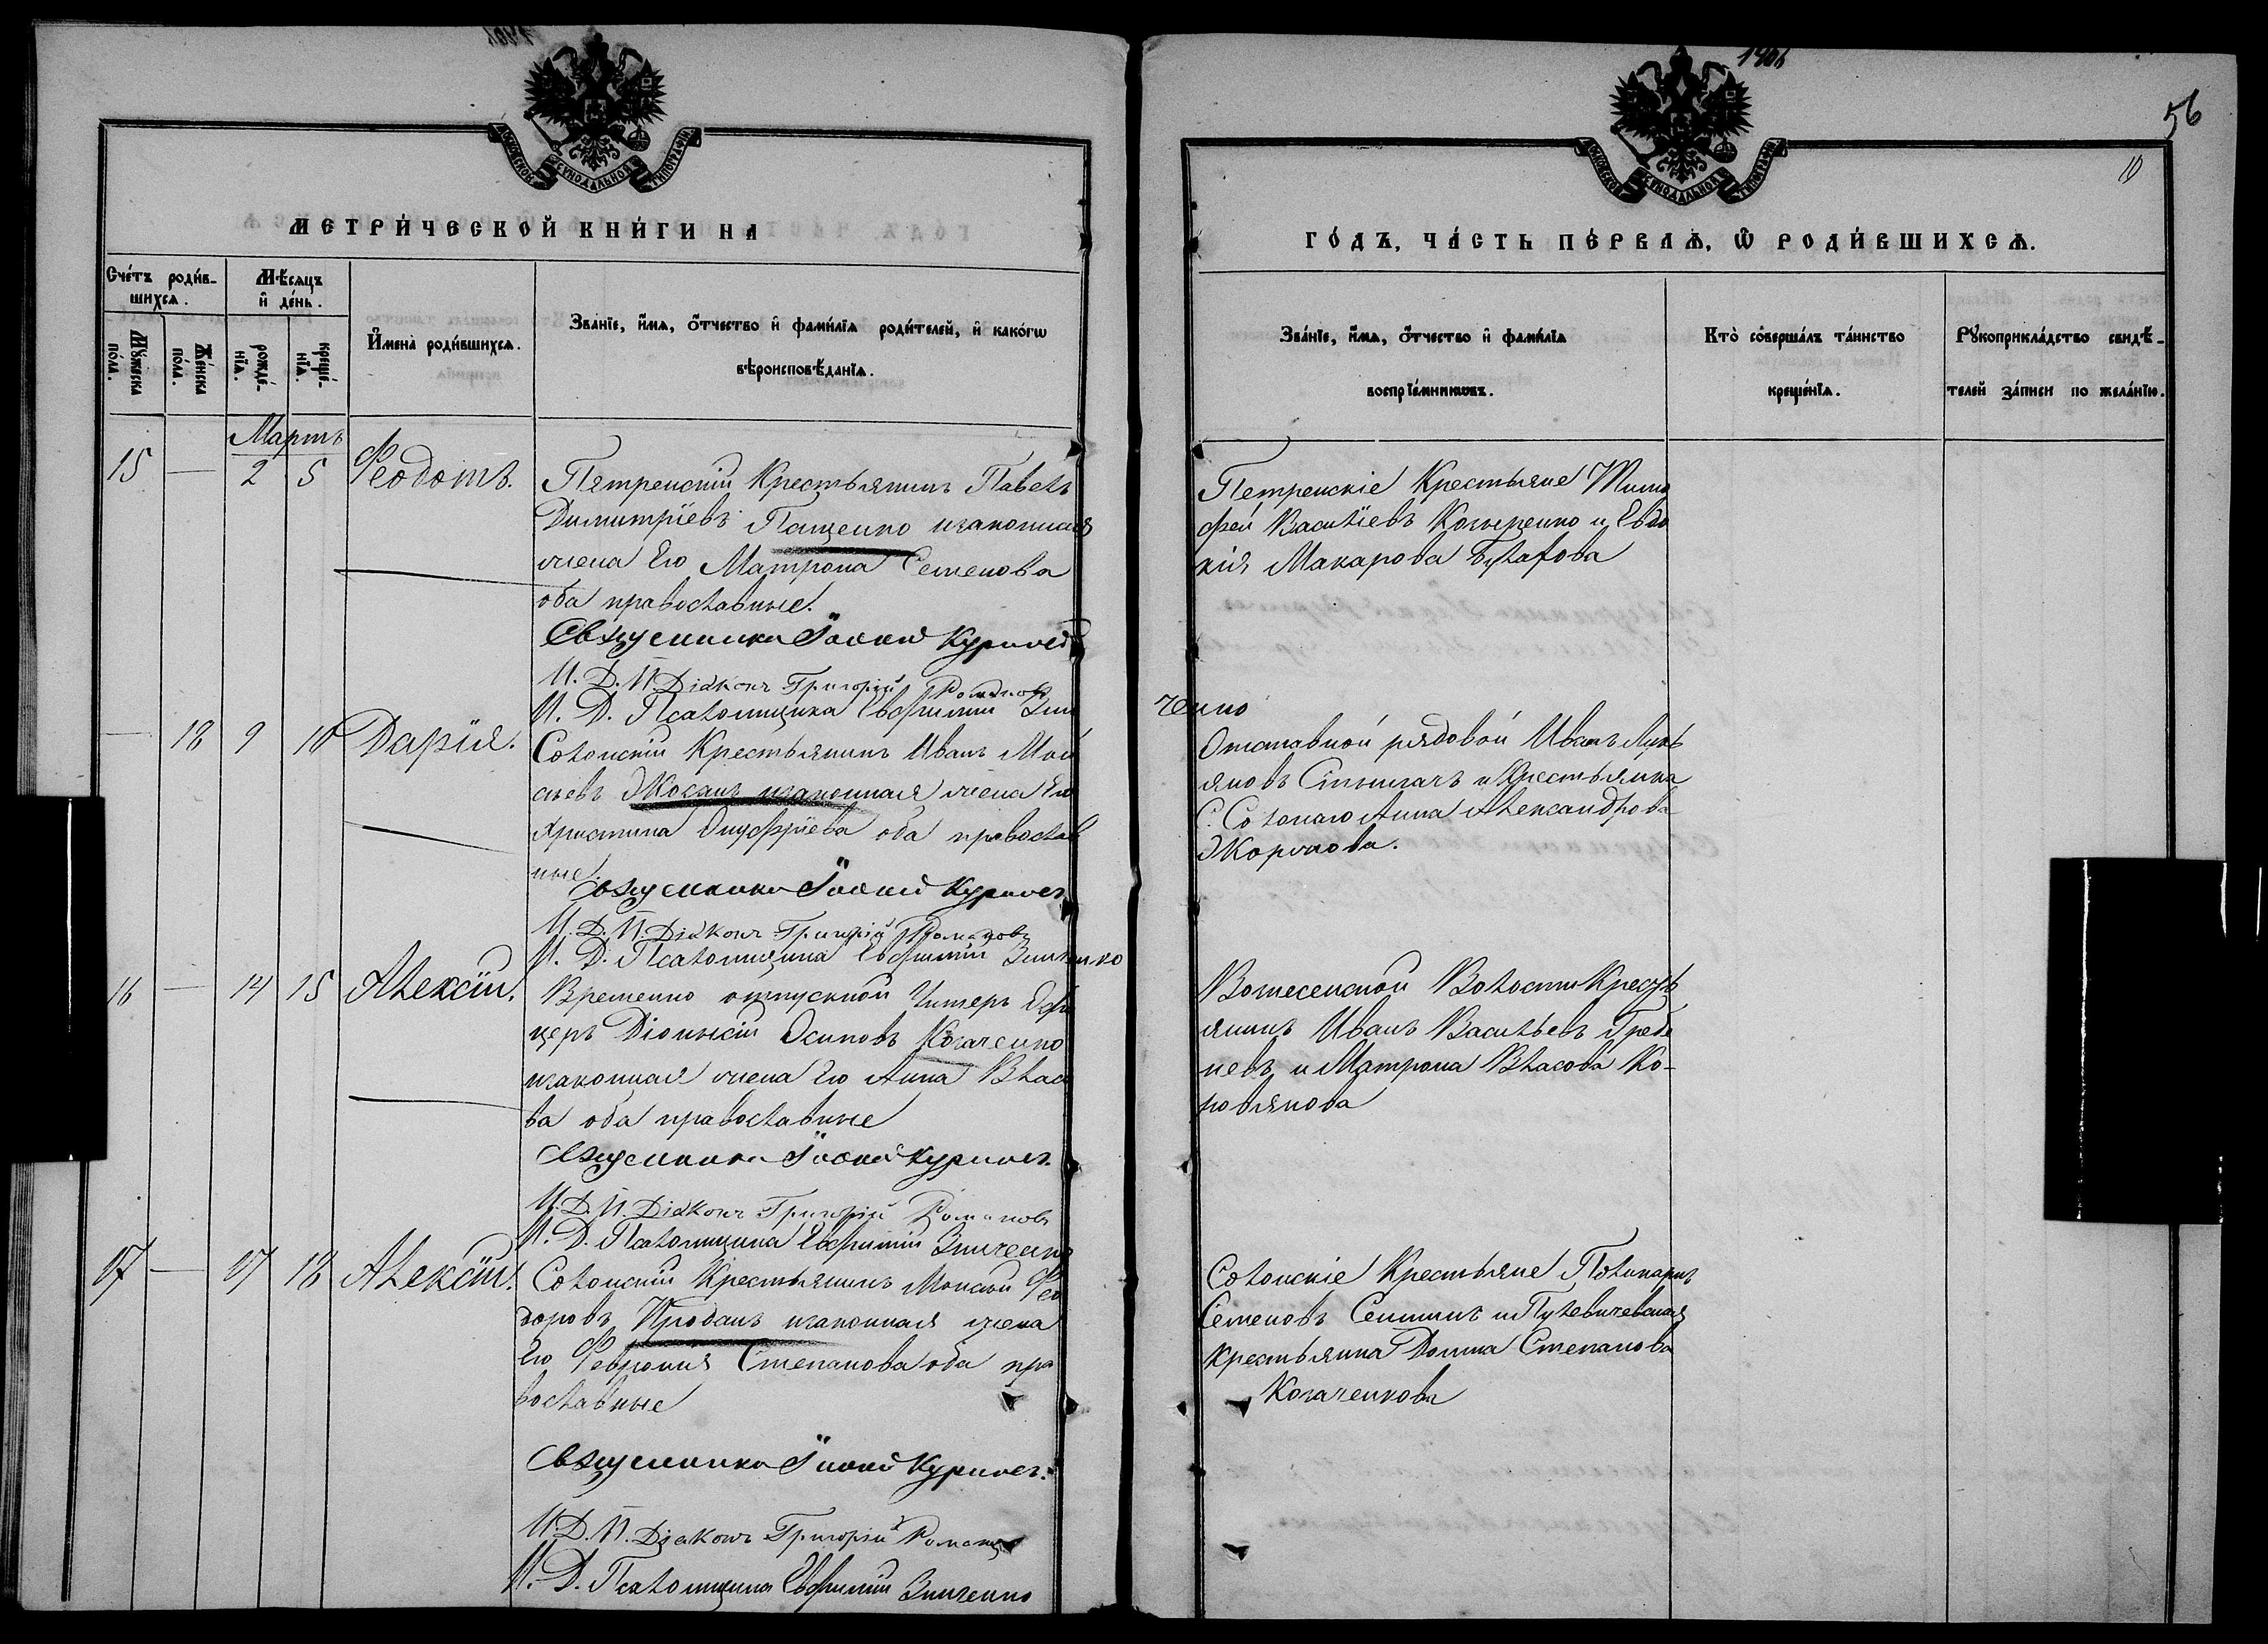 56
10
МОСКОВСКОЙ СѴНОДАЛЬНОЙ ТИПОГРАФІИ
МЕТРИ́ЧЕСКОЙ КНИ́ГИ НА
Сче́тъ роди́в-
шихсѧ.
Мѣ́сѧцъ
и҆ де́нь.
Мꙋ́жеска
по́ла.
Же́нска
по́ла.
рожде́-
нїѧ.
креще́-
нїѧ.
И҆мена̀ роди́вшихсѧ.
Зва́нїе, и҆́мѧ, ѻ҆́тчество и҆ фами́лїѧ роди́телей, и҆ како́гѡ
вѣроисповѣ́данїѧ.
Мартъ
15 — 2 5 Феодотъ.
Петренскій Крестьянинъ Павелъ
Димитріевъ Пащенко изаконная
жена Его Матрона Семенова
оба православные.
Священникъ Іоаннъ Куриловъ
И. Д. П. Діаконъ Григорій Романовъ
И. Д. Псаломщика Евфимій Зин
— 18 9 10 Дарія.
Солонскій Крестьянинъ Иванъ Мои
сеевъ Жосанъ изаконная жена Его
Христина Онуфріева оба православ
ные.
Священникъ Іоаннъ Куриловъ
И. Д. П. Діаконъ Григорій Романовъ
И. Д. Псаломщика Евфимій Зинченко
16 — 14 15 Алексій.
Временно отпускной Унтеръ Офи
церъ Діонисій Осиповъ Косаченко
изаконная жена Его Анна Власо
ва оба православные
Священникъ Іоаннъ Куриловъ.
И. Д. П. Діаконъ Григорій Романовъ
И. Д. Псаломщика Евфимій Зинченко
17 — 17 18 Алексій.
Солонскій Крестьянинъ Моисей Фео
доровъ Проданъ изаконная жена
Его Феврония Степанова оба пра
вославные
Священникъ Іоаннъ Куриловъ.
И. Д. П. Діаконъ Григорій Романовъ
И. Д. Псаломщика Евфимій Зинченко
МОСКОВСКОЙ СѴНОДАЛЬНОЙ ТИПОГРАФІИ
ГО́ДЪ, ЧА́СТЬ ПЕ́РВАѦ, Ѡ҆ РОДИ́ВШИХСѦ.
Зва́нїе, и҆́мѧ, ѻ҆́тчество и҆ фами́лїѧ
воспрїе́мникѡвъ.
Кто̀ соверша́лъ та́инство
креще́нїѧ.
Рꙋкоприкла́дство свидѣ́-
телей за́писи по жела́нїю.
Петренскіе Крестьяне Тимо
фей Василіевъ и Евдо
кія Макарова
ченко
Отставной рядовой Иванъ Лукь
яновъ и Крестьянка
С. Солонаго Анна Александрова
Вознесенской Волости Кресть
янинъ Иванъ Васильевъ Гребе
невъ и Матрона Власова Ко-
Солонскіе Крестьяне Поликарпъ
Семеновъ и
крестьянка Домна Степанова
Косаченкова